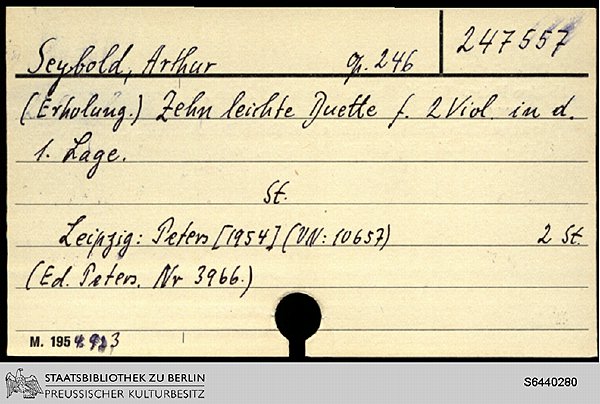 Seybold, Arthur op. 246 247557
(Erholung.) Zehn leichte Duette f. 2 Viol. in d.
1. Lage.
St.
Leipzig: Peters [1954] (VN: 10657) 2 St.
(Ed. Peters. Nr 3966.)
M. 195
STAATSBIBLIOTHEK ZU BERLIN
PREUSSISCHER KULTURBESITZ
S6440280